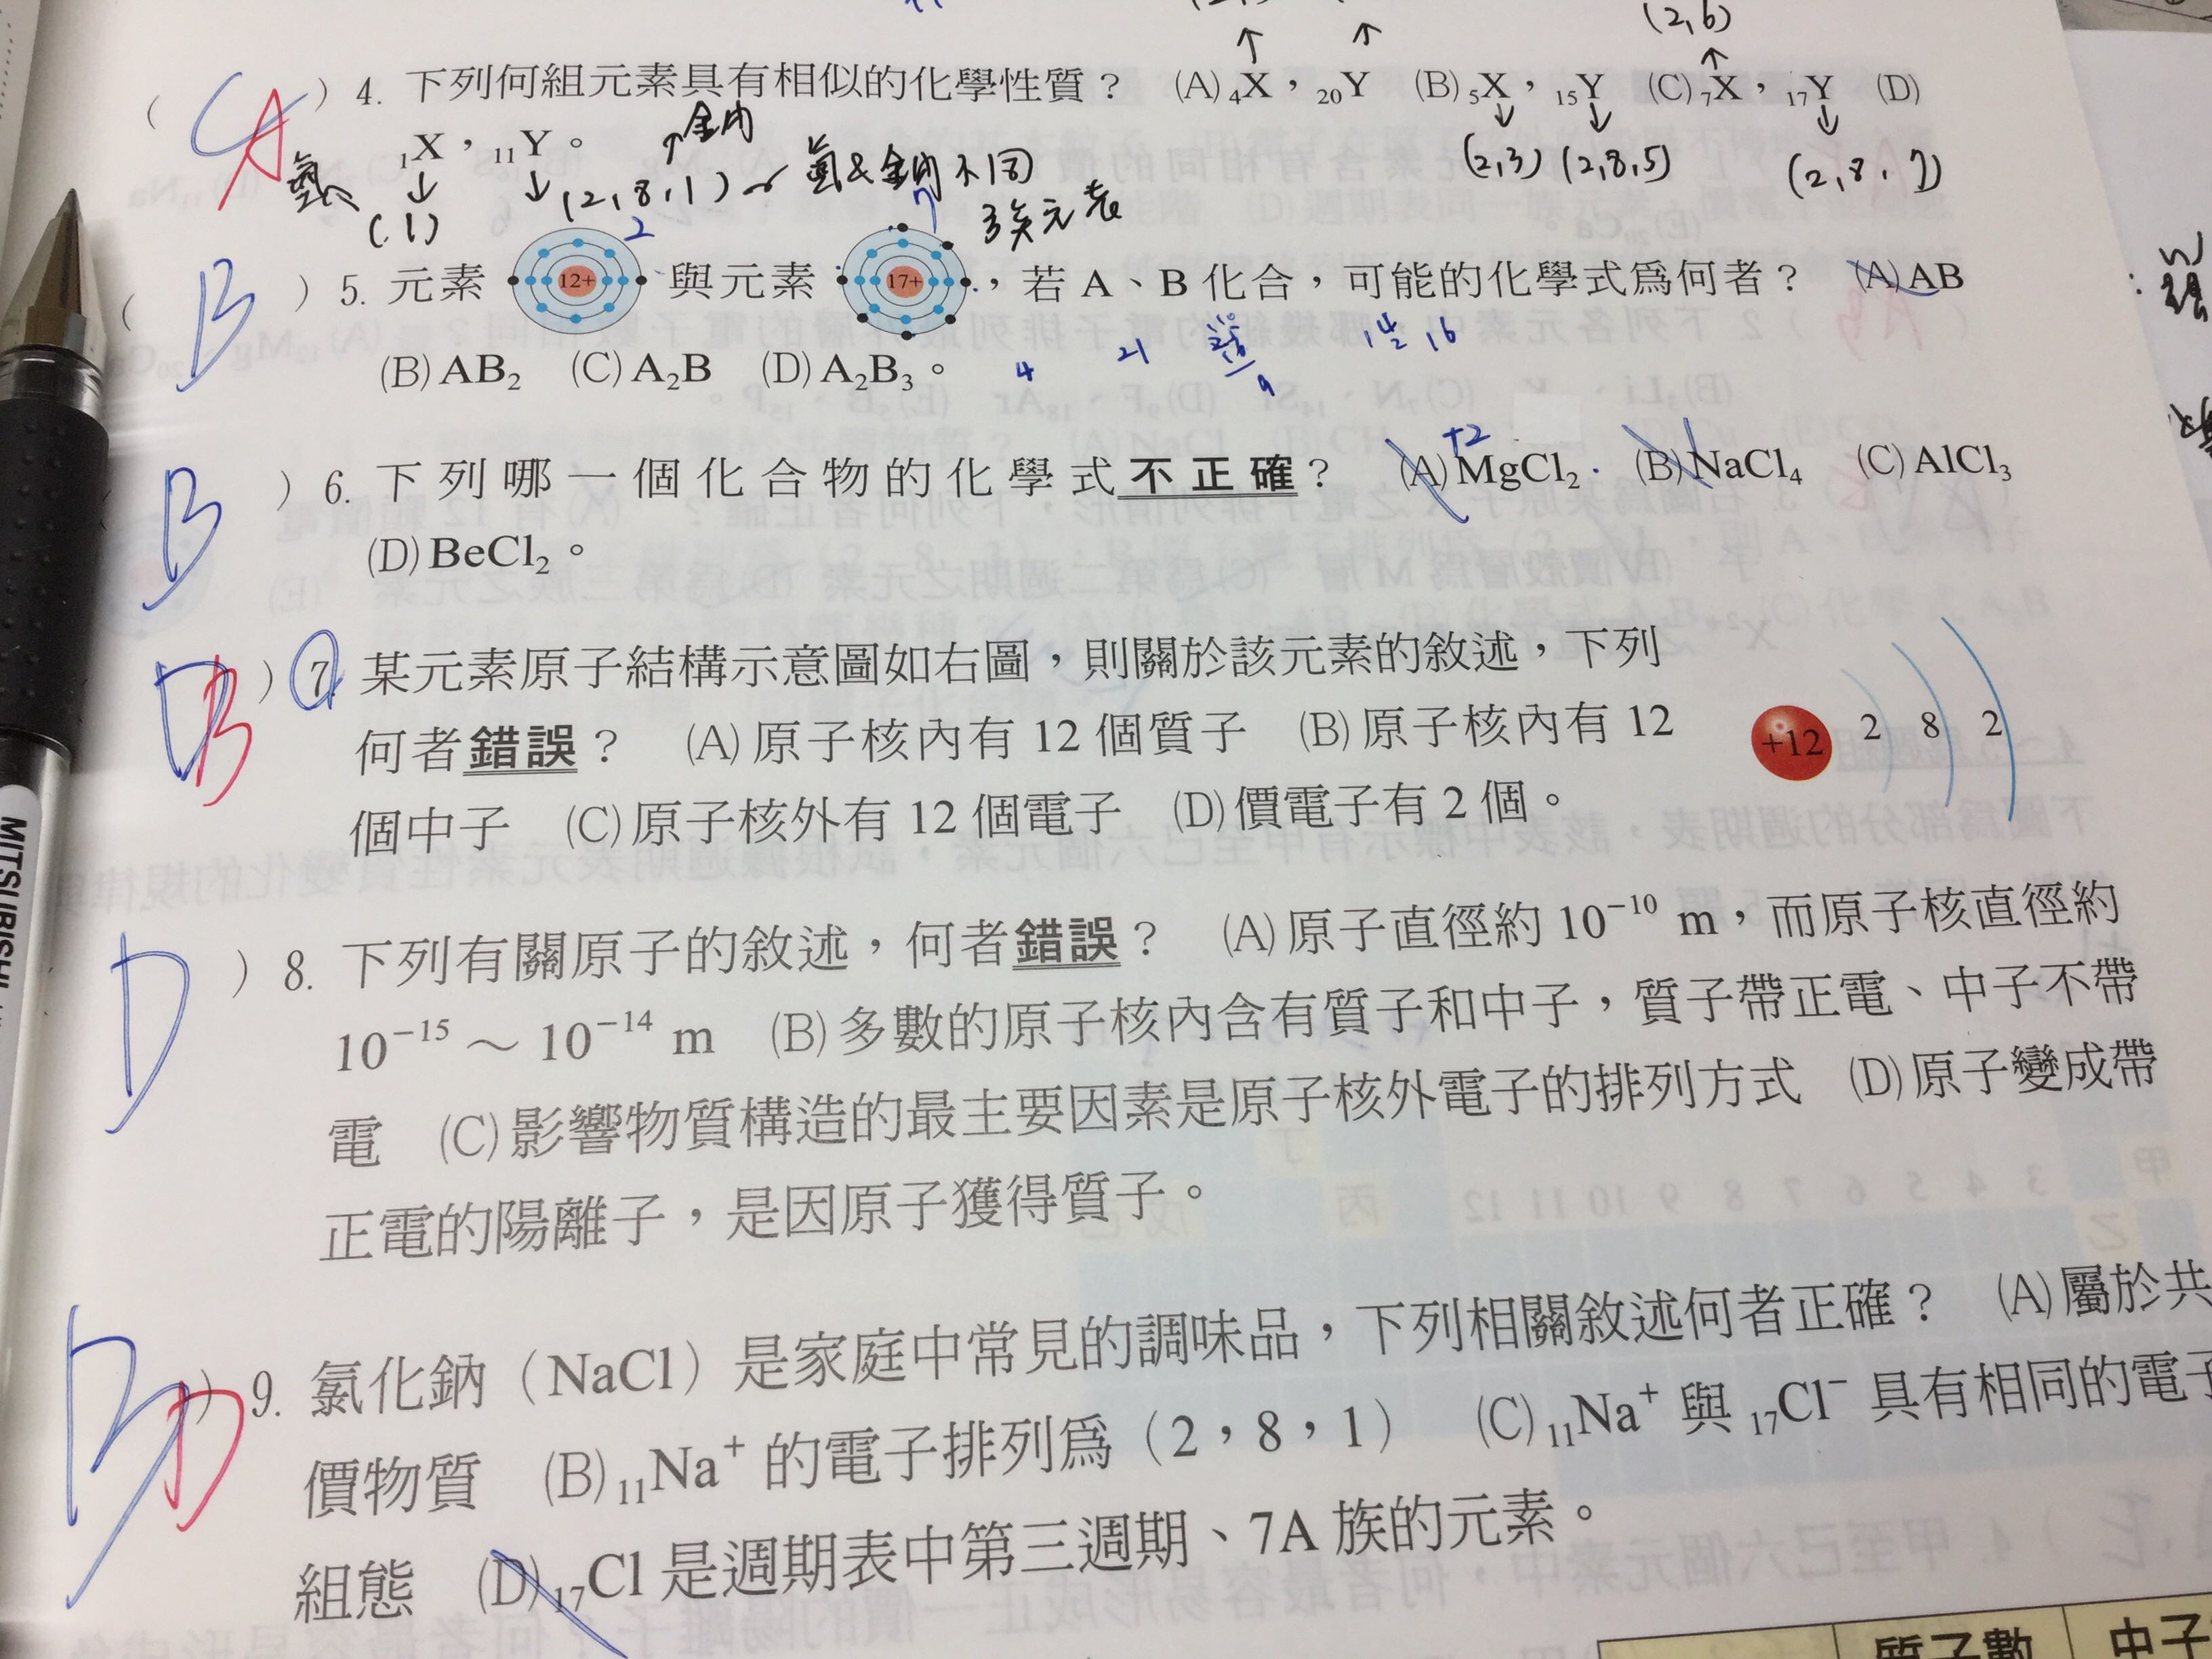 (2,6)
↑ ↑ ↑
( A ) 4. 下列何組元素具有相似的化學性質？ (A) ₄X，₂₀Y (B) ₅X，₁₅Y (C) ₇X，₁₇Y (D)
₁X，₁₁Y。 ↗鈉
氫 ↓ ↓ (2,8,1) 氫&鈉不同 ↓ ↓ ↓
(1) 族元素 (2,3) (2,8,5) (2,8,7)
2 7
( B ) 5. 元素 12+ 與元素 17+ ，若 A、B 化合，可能的化學式為何者？ (A) AB
(B) AB₂ (C) A₂B (D) A₂B₃。
4 21 9 14 16
+2
( B ) 6. 下列哪一個化合物的化學式不正確？ (A) MgCl₂ (B) NaCl₄ (C) AlCl₃
(D) BeCl₂。
D B ) 7. 某元素原子結構示意圖如右圖，則關於該元素的敘述，下列
何者錯誤？ (A) 原子核內有 12 個質子 (B) 原子核內有 12
個中子 (C) 原子核外有 12 個電子 (D) 價電子有 2 個。
+12 2 8 2
D ) 8. 下列有關原子的敘述，何者錯誤？ (A) 原子直徑約 10⁻¹⁰ m，而原子核直徑約
10⁻¹⁵～10⁻¹⁴ m (B) 多數的原子核內含有質子和中子，質子帶正電、中子不帶
電 (C) 影響物質構造的最主要因素是原子核外電子的排列方式 (D) 原子變成帶
正電的陽離子，是因原子獲得質子。
B D ) 9. 氯化鈉（NaCl）是家庭中常見的調味品，下列相關敘述何者正確？ (A) 屬於共
價物質 (B) ₁₁Na⁺ 的電子排列為（2，8，1） (C) ₁₁Na⁺ 與 ₁₇Cl⁻ 具有相同的電子
組態 (D) ₁₇Cl 是週期表中第三週期、7A 族的元素。
質子數 中子
MITSUBISHI